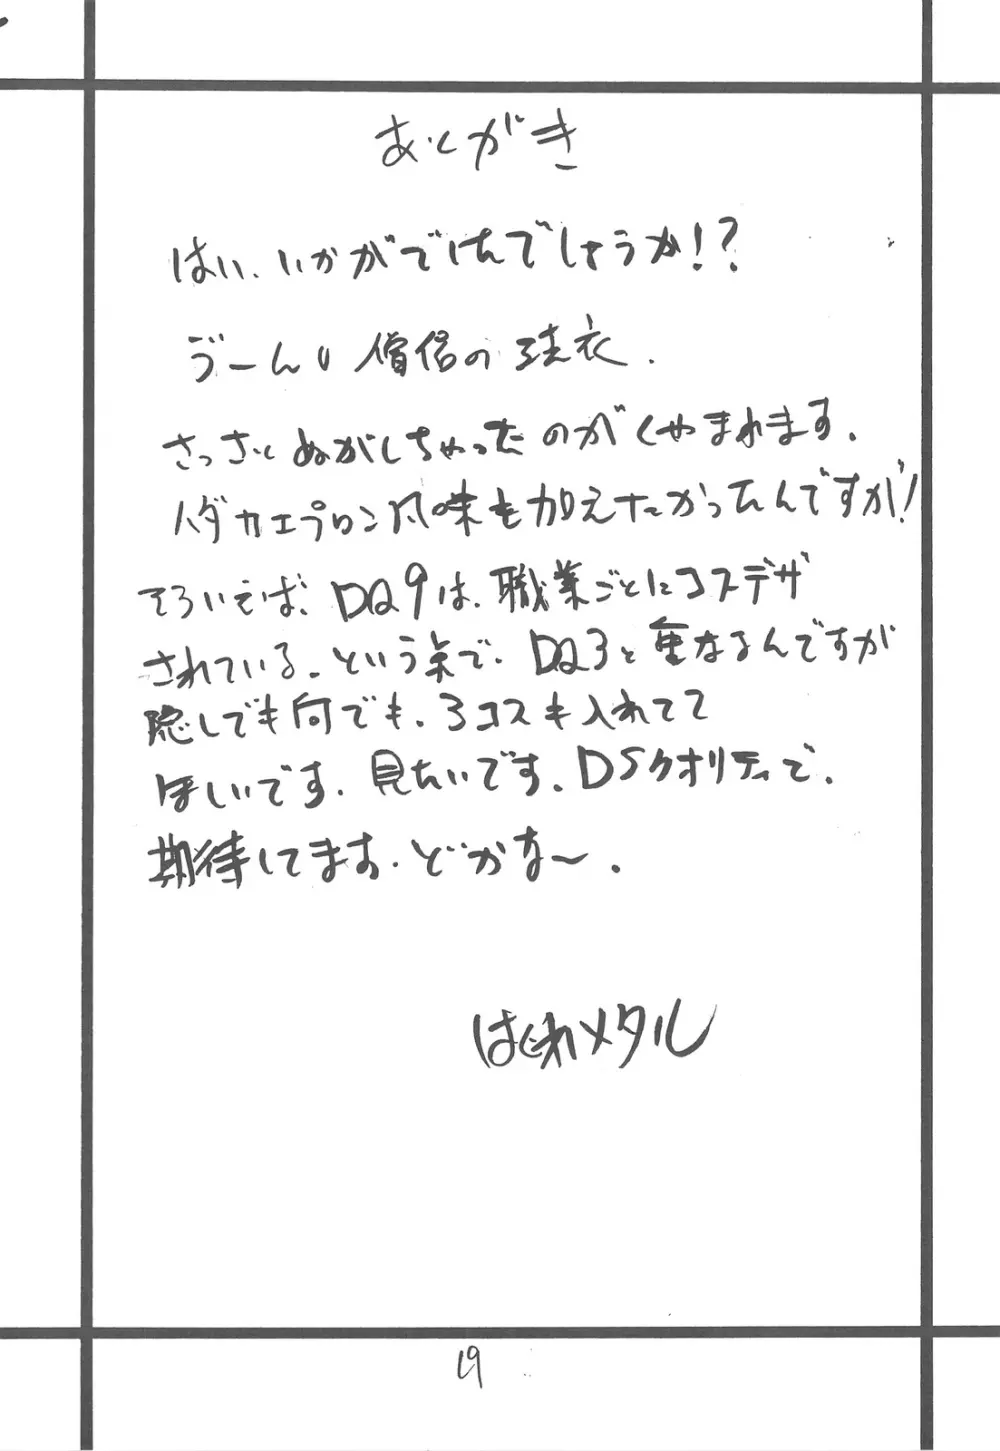 あとがき
はい、いかがでしたでしょうか!?
うーん 僧侶の 法衣.
さっさと ぬがしちゃったのがくやまれます.
ハダカエプロン風味も加えたかったんですが!
そういえば、DQ9は、職業ごとにコスデザ
されている. という条で、DQ3と重なるんですが
隠しでも何でも、3コスも入れてて
ほしいです. 見たいです. DSクオリティで.
期待してます. どかな〜.
はぐれメタル
19